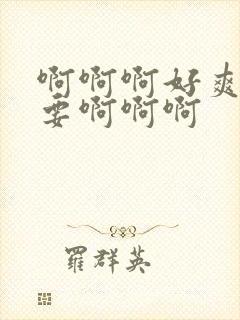 啊啊啊好爽
要啊啊啊
羅群英